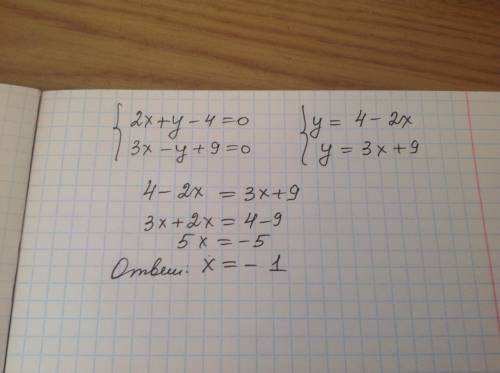 { 2x+y-4=0 { y = 4-2x
3x-y+9=0 y = 3x+9
4-2x = 3x+9
3x+2x = 4-9
5x = -5
Ответ: x = - 1